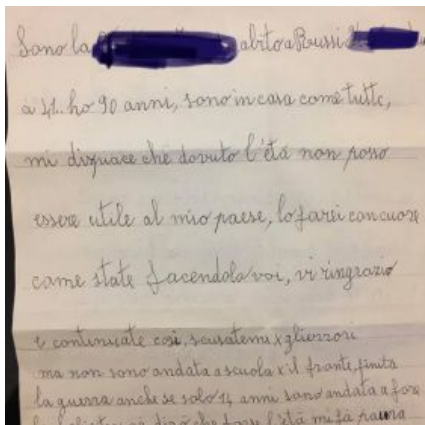 Sono la abito a Russi
a 41. ho 90 anni, sono in casa come tutte,
mi dispiace che dovuto l'età non posso
essere utile al mio paese, lo farei con cuore
come state facendola voi, vi ringrazio
e continuate così, scusatemi x gli errori
ma non sono andata a scuola x il fronte, finita
la guerra anche se solo 14 anni sono andata a fare